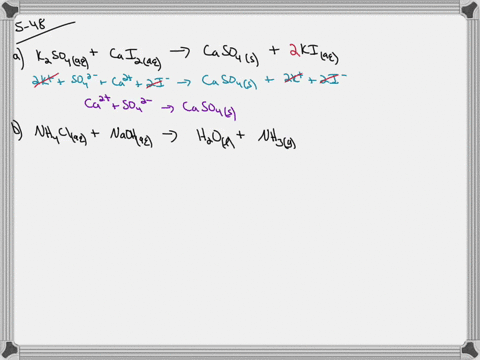 5-48
a) K₂SO₄(aq) + CaI₂(aq) → CaSO₄(s) + 2KI(aq)
2K⁺ + SO₄²⁻ + Ca²⁺ + 2I⁻ → CaSO₄(s) + 2K⁺ + 2I⁻
Ca²⁺ + SO₄²⁻ → CaSO₄(s)
b) NH₄Cl(aq) + NaOH(aq) → H₂O(l) + NH₃(g)